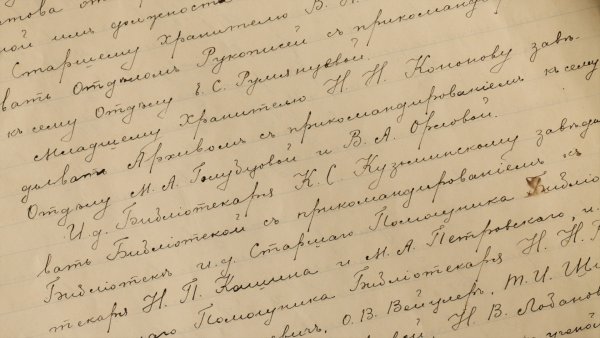 ной имъ должности
Старшему Хранителю В.
вать Отдѣломъ Рукописей съ прикоманди
къ сему Отдѣлу Е. С. Румянцевой.
Младшему Хранителю Н. Н. Кононову завѣ-
дывать Архивомъ съ прикомандированіемъ къ сему
Отдѣлу М. А. Голубцовой и В. А. Орловой.
И. д. Библіотекаря К. С. Кузьминскому завѣды
вать Библіотекой съ прикомандированіемъ къ
Библіотекѣ и. д. Старшаго Помощника Библіо
текаря Н. П. Кашина и М. А. Петровскаго, и.
Помощника Библіотекаря Н. Н.
О. В.
Н. В. Лобанов